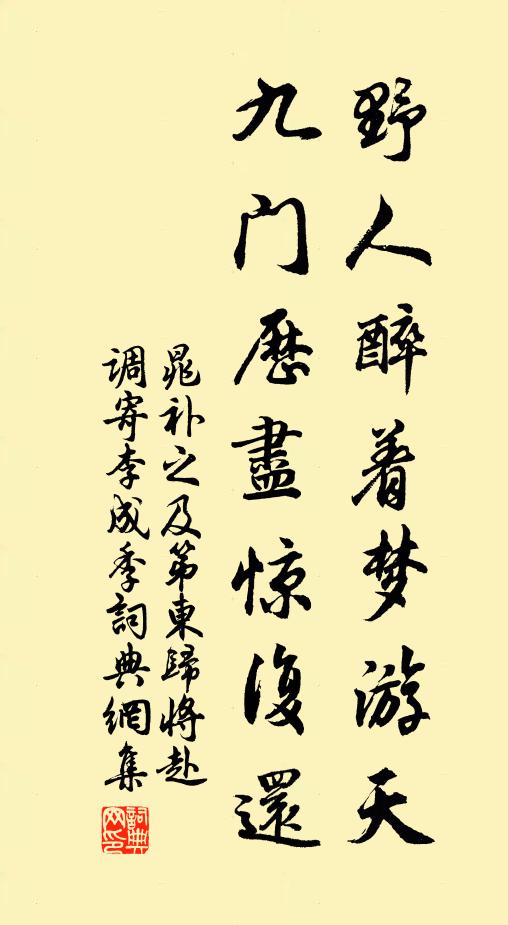 野人醉着梦游天
九门歷盡惊復還
晁补之及第東歸将赴
调寄李成季詞典網集
詞典
网印